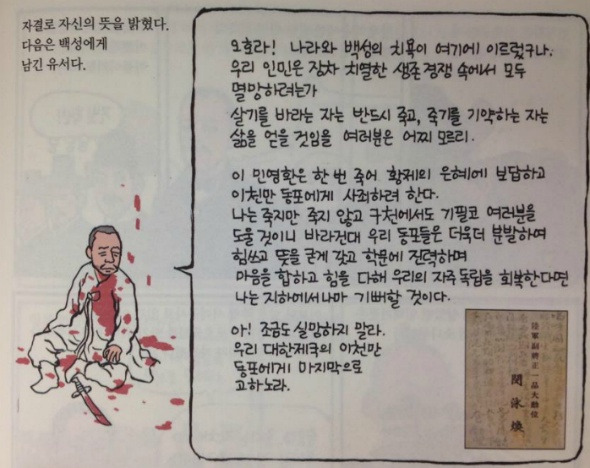 자결로 자신의 뜻을 밝혔다.
다음은 백성에게
남긴 유서다.
오호라! 나라와 백성의 치욕이 여기에 이르렀구나.
우리 인민은 장차 치열한 생존경쟁 속에서 모두
멸망하려는가
살기를 바라는 자는 반드시 죽고, 죽기를 기약하는 자는
삶을 얻을 것임을 여러분은 어찌 모르리.
이 민영환은 한 번 죽어 황제의 은혜에 보답하고
이천만 동포에게 사죄하려 한다.
나는 죽지만 죽지 않고 구천에서도 기필코 여러분을
도울 것이니 바라건대 우리 동포들은 더욱더 분발하여
힘쓰고 뜻을 굳게 갖고 학문에 진력하며
마음을 합하고 힘을 다해 우리의 자주독립을 회복한다면
나는 지하에서나마 기뻐할 것이다.
아! 조금도 실망하지 말라.
우리 대한제국의 이천만
동포에게 마지막으로
고하노라.
陸軍副將正一品大勳位
閔泳煥